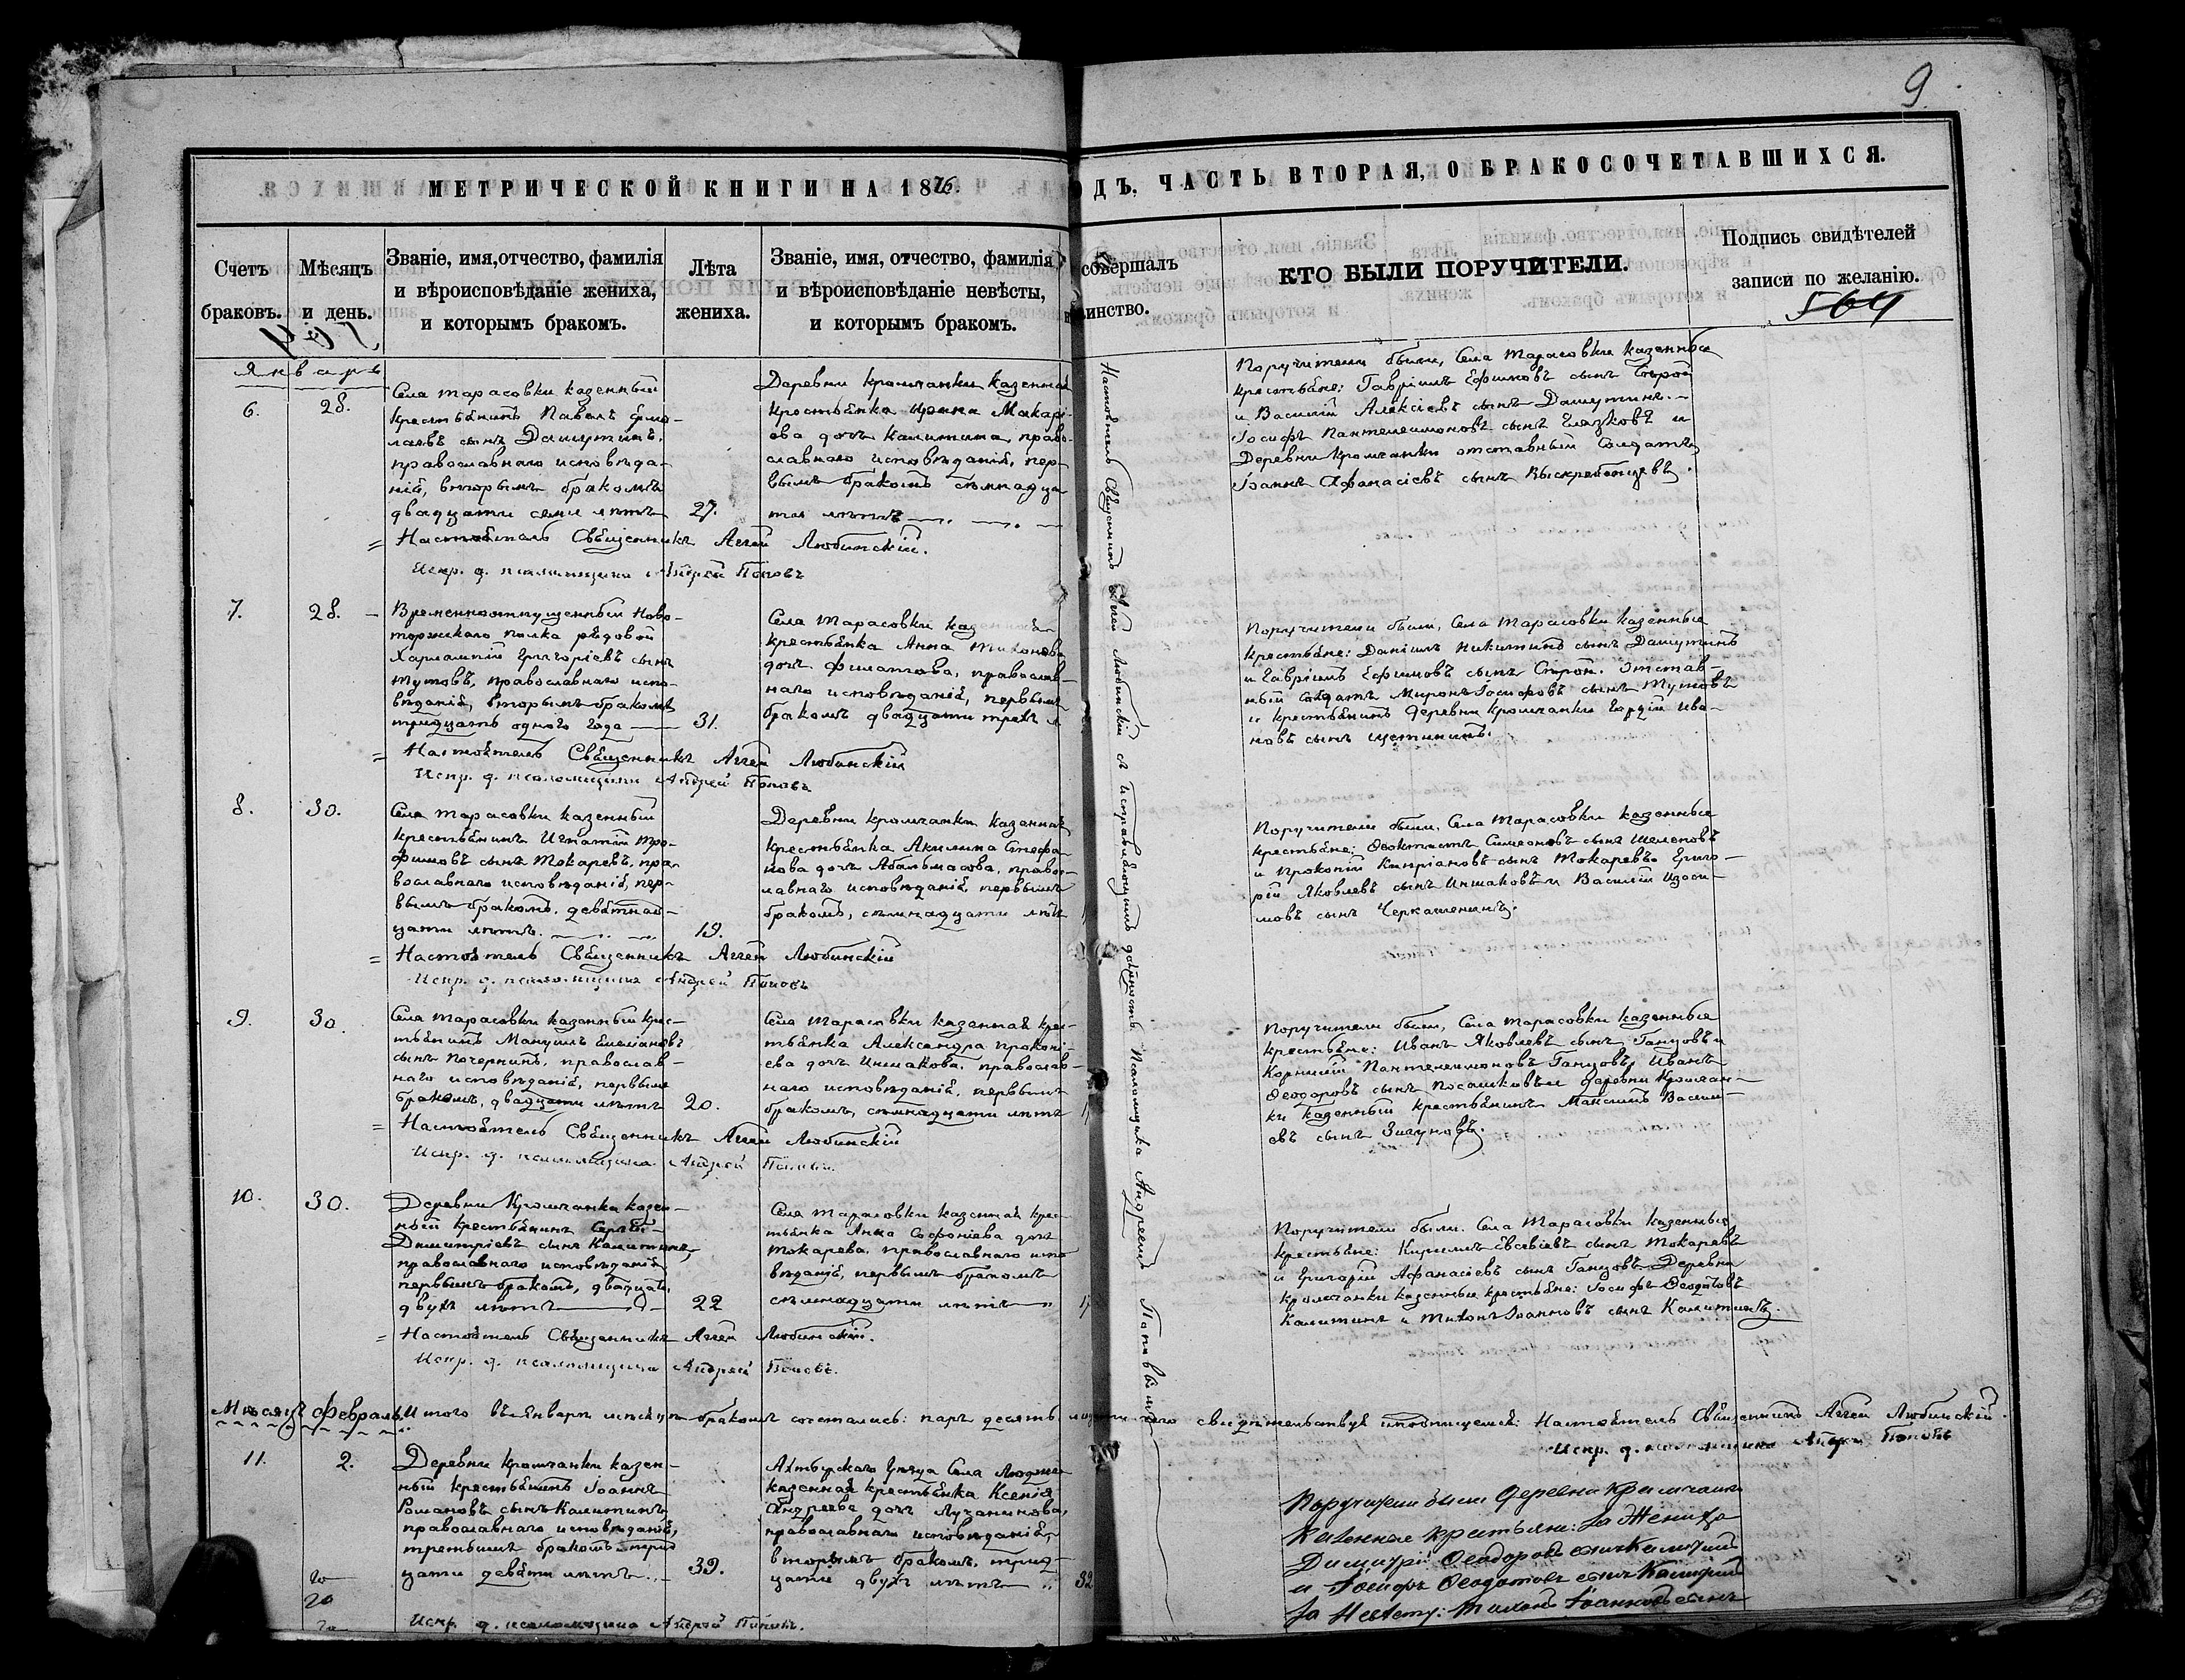 9
МЕТРИЧЕСКОЙ КНИГИ НА 1876
ДЪ. ЧАСТЬ ВТОРАЯ, О БРАКОСОЧЕТАВШИХСЯ.
Счетъ браковъ.
Мѣсяцъ и день.
Званіе, имя, отчество, фамилія
и вѣроисповѣданіе жениха,
и которымъ бракомъ.
Лѣта
жениха.
Званіе, имя, отчество, фамилія
и вѣроисповѣданіе невѣсты,
и которымъ бракомъ.
совершалъ
таинство.
КТО БЫЛИ ПОРУЧИТЕЛИ.
Подпись свидѣтелей
записи по желанію.
564
Январь
6.
28.
Села Тарасовки казенный
крестьянинъ Павелъ
сынъ Дашутинъ,
православнаго исповѣда-
нія, вторымъ бракомъ
двадцати семи лѣтъ
27.
Деревни Кромчанки казенная
крестьянка Макарі-
ева дочь Калитина, право-
славнаго исповѣданія, пер-
вымъ бракомъ сѣмнадца
ти лѣтъ
Поручители были, Села Тарасовки казенные
крестьяне: Гавріилъ Ефимовъ сынъ Сырой
и Василій Алексіевъ сынъ Дашутинъ.
Іосифъ Пантелеимоновъ сынъ Глазковъ и
Деревни Кромчанки отставный Солдатъ
Іоаннъ Афанасіевъ сынъ Выскребенцевъ.
Настоятель Священникъ Аггей Любинскій.
Испр. д. псаломщика Андрей Поповъ
7.
28.
Временноотпущенный Ново-
торжскаго полка рядовой
Харлампій Григоріевъ сынъ
Тутовъ, православнаго испо-
вѣданія, вторымъ бракомъ
тридцать одного года
31.
Села Тарасовки казенная
крестьянка Анна Тихонова
дочь Филатова, православ-
наго исповѣданія, первымъ
бракомъ двадцати трехъ л
Поручители были, Села Тарасовки казенные
крестьяне: Даніилъ Никитинъ сынъ Дашутинъ
и Гавріилъ Ефимовъ сынъ Сырой. Отстав-
ный Солдатъ Миронъ Іосифовъ сынъ Тутовъ
и крестьянинъ деревни Кромчанки Гордій Ива-
новъ сынъ Щетининъ.
Настоятель Священникъ Аггей Любинскій
Испр. д. псаломщика Андрей Поповъ
8.
30.
Села Тарасовки казенный
крестьянинъ Игнатій Тро-
фимовъ сынъ Токаревъ, пра-
вославнаго исповѣданія, пер-
вымъ бракомъ, девятнад-
цати лѣтъ.
19.
Деревни Кромчанки казенная
крестьянка Акилина Стефа-
нова дочь Абальмасова, право-
славнаго исповѣданія, первымъ
бракомъ, сѣмнадцати лѣтъ
Поручители были, Села Тарасовки казенные
крестьяне: Феоктистъ Симеоновъ сынъ Шелеповъ
и Прокопій Кипріановъ сынъ Токаревъ. Григо-
рій Яковлевъ сынъ Иншаковъ и Василій Изоси-
мовъ сынъ Черкашенинъ.
Настоятель Священникъ Аггей Любинскій
Испр. д. псаломщика Андрей Поповъ
9.
30.
Села Тарасовки казенный крес-
тьянинъ Мануилъ Емеліановъ
сынъ Почернинъ, православ-
наго исповѣданія, первымъ
бракомъ, двадцати лѣтъ
20.
Села Тарасовки казенная крес-
тьянка Александра Прокопі-
ева дочь Иншакова, православ-
наго исповѣданія, первымъ
бракомъ, сѣмнадцати лѣтъ
Поручители были, Села Тарасовки казенные
крестьяне: Иванъ Яковлевъ сынъ Ганцовъ и
Корнилій Пантелеимоновъ Ганцовъ, Иванъ
Феодоровъ сынъ Посашковъ и деревни Кромчан-
ки казенный крестьянинъ Максимъ Васили-
евъ сынъ Зигуновъ.
Настоятель Священникъ Аггей Любинскій
Испр. д. псаломщика Андрей Поповъ.
10.
30.
Деревни Кромчанки казен-
ный крестьянинъ Сергѣй
Димитріевъ сынъ Калитинъ,
православнаго исповѣданія
первымъ бракомъ, двадцати
двухъ лѣтъ
22
Села Тарасовки казенная крес-
тьянка Анна Софоніева дочь
Токарева, православнаго испо
вѣданія, первымъ бракомъ
сѣмнадцати лѣтъ
Поручители были. Села Тарасовки казенные
крестьяне: Кириллъ Евсевіевъ сынъ Токаревъ
и Григорій Афанасіевъ сынъ Ганцовъ. Деревни
Кромчанки казенные крестьяне: Іосифъ Феодотовъ
Калитинъ и Тихонъ Іоанновъ сынъ Калитинъ.
Настоятель Священникъ Аггей Любинскій.
Испр. д. псаломщика Андрей Поповъ.
Настоятель Священникъ Аггей Любинскій съ исправляющимъ должность Псаломщика Андреемъ Поповымъ
Мѣсяцъ Февраль
Итого въ Январѣ мѣсяцѣ бракомъ сочетались: паръ десять свидѣтельствуя подписуемся: Настоятель Священникъ Аггей Любинскій.
Испр. д. псаломщика Андрей Поповъ
11.
2.
Деревни Кромчанки казен-
ный крестьянинъ Іоаннъ
Романовъ сынъ Калитинъ
православнаго исповѣданія,
третьимъ бракомъ трид
цати девяти лѣтъ
39.
Ахтырскаго уѣзда Села
казенная крестьянка Ксенія
Андреева дочь Лучанинова,
православнаго исповѣданія,
вторымъ бракомъ, трид-
цати двухъ лѣтъ
32
Поручители были деревни Кромчанки
казенные крестьяне: За Жениха
Димитрій Феодоровъ сынъ Калитинъ
и Іосифъ Феодотовъ сынъ Калитинъ
За Невѣсту: Тихонъ Іоанновъ сынъ
Испр. д. псаломщика Андрей Поповъ.